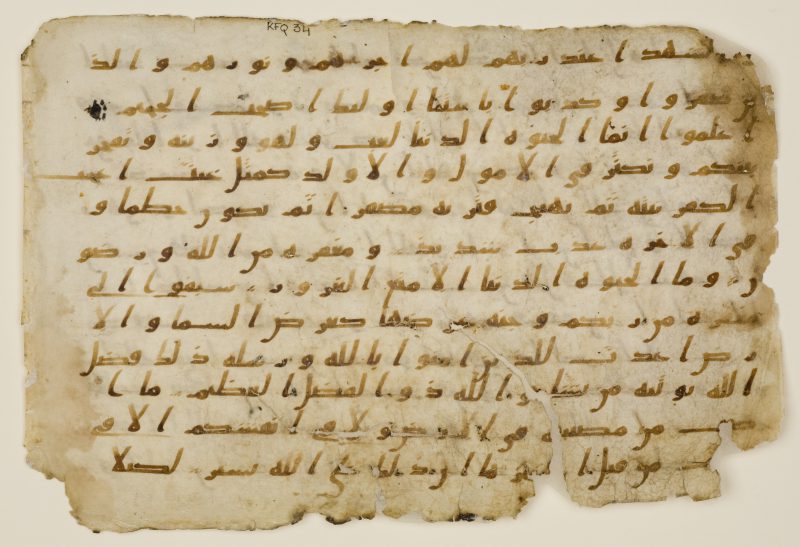 KFQ 34
والشهدا عند ربهم لهم اجرهم ونورهم والذ
ين كفروا وكذبوا باىتنا اولىك اصحب الجحيم
اعلموا انما الحيوه الدنيا لعب ولهو وزينه وتفخر
بينكم وتكثر في الامول والاولد كمثل غيث اعجب
الكفر نبته ثم يهيج فتريه مصفرا ثم يكون حطما و
في الاخره عذب شديد ومغفره من الله ورضو
ن وما الحيوه الدنيا الا متع الغرور سبقوا الى
مغفره من ربكم وجنه عرضها كعرض السما والا
رض اعدت للذين امنوا بالله ورسله ذلك فضل
الله يوتيه من يشا والله ذو الفضل العظيم ما ا
صب من مصيبه في الارض ولا في انفسكم الا في
من قبل ان ذلك على الله يسير لكيلا